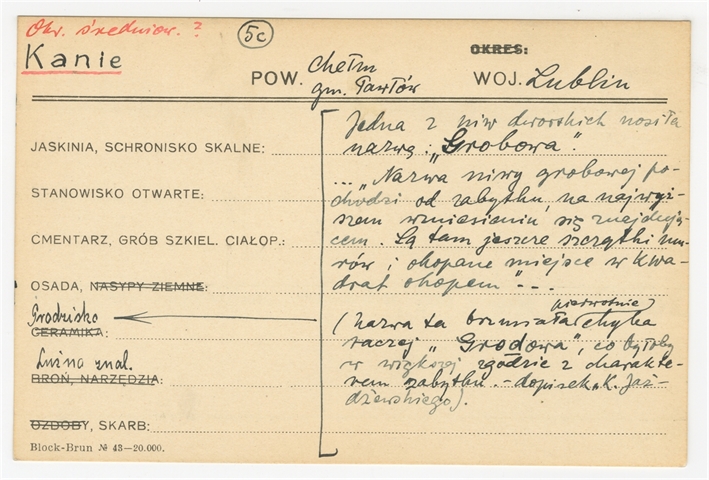 Okr. średniow. ?
5c
Kanie
OKRES:
POW. Chełm
gm. Pawłów
WOJ. Lublin
JASKINIA, SCHRONISKO SKALNE:
STANOWISKO OTWARTE:
CMENTARZ, GRÓB SZKIEL. CIAŁOP.:
OSADA, NASYPY ZIEMNE:
Grodzisko
CERAMIKA:
Luźno znal.
BROŃ, NARZĘDZIA:
OZDOBY, SKARB:
Block-Brun № 43—20.000.
Jedna z niw dworskich nosiła
nazwę: „Grobowa".
... „Nazwa niwy grobowej po-
chodzi od zabytku na najwyż-
szem wzniesieniu się znajdują-
cem. Są tam jeszcze szczątki mu-
rów i okopane miejsce w kwa-
drat okopem" ...
(nazwa ta brzmiała (pierwotnie) chyba
raczej „Grodowa", co byłoby
w większej zgodzie z charakte-
rem zabytku. - dopisek K. Jaż-
dżewskiego).